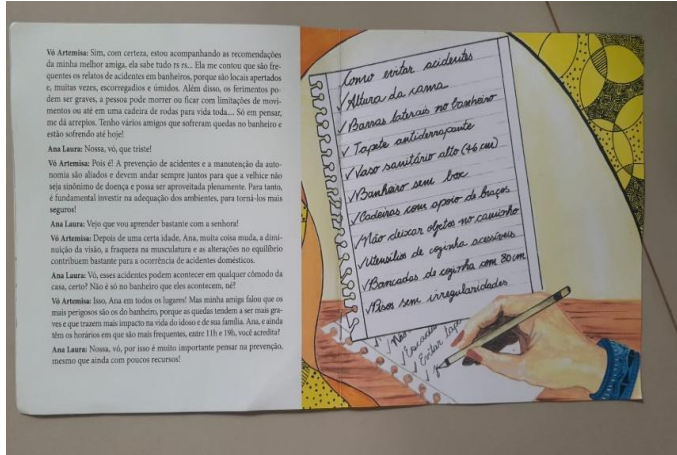 Vó Artemisa: Sim, com certeza, estou acompanhando as recomendações
da minha melhor amiga, ela sabe tudo rs rs... Ela me contou que são fre-
quentes os relatos de acidentes em banheiros, porque são locais apertados
e, muitas vezes, escorregadios e úmidos. Além disso, os ferimentos po-
dem ser graves, a pessoa pode morrer ou ficar com limitações de movi-
mentos ou até em uma cadeira de rodas para vida toda... Só em pensar,
me dá arrepios. Tenho vários amigos que sofreram quedas no banheiro e
estão sofrendo até hoje!
Ana Laura: Nossa, vó, que triste!
Vó Artemisa: Pois é! A prevenção de acidentes e a manutenção da auto-
nomia são aliados e devem andar sempre juntos para que a velhice não
seja sinônimo de doença e possa ser aproveitada plenamente. Para tanto,
é fundamental investir na adequação dos ambientes, para torná-los mais
seguros!
Ana Laura: Vejo que vou aprender bastante com a senhora!
Vó Artemisa: Depois de uma certa idade, Ana, muita coisa muda, a dimi-
nuição da visão, a fraqueza na musculatura e as alterações no equilíbrio
contribuem bastante para a ocorrência de acidentes domésticos.
Ana Laura: Vó, esses acidentes podem acontecer em qualquer cômodo da
casa, certo? Não é só no banheiro que eles acontecem, né?
Vó Artemisa: Isso, Ana em todos os lugares! Mas minha amiga falou que os
mais perigosos são os do banheiro, porque as quedas tendem a ser mais gra-
ves e que trazem mais impacto na vida do idoso e de sua família. Ana, e ainda
têm os horários em que são mais frequentes, entre 11h e 19h, você acredita?
Ana Laura: Nossa, vó, por isso é muito importante pensar na prevenção,
mesmo que ainda com poucos recursos!
Como evitar acidentes
✓Altura da cama
✓Barras laterais no banheiro
✓Tapete antiderrapante
✓Vaso sanitário alto (46 cm)
✓Banheiro sem box
✓Cadeiras com apoio de braços
✓Não deixar objetos no caminho
✓Utensílios de cozinha acessíveis
✓Bancadas de cozinha com 80cm
✓Pisos sem irregularidades
Evitar